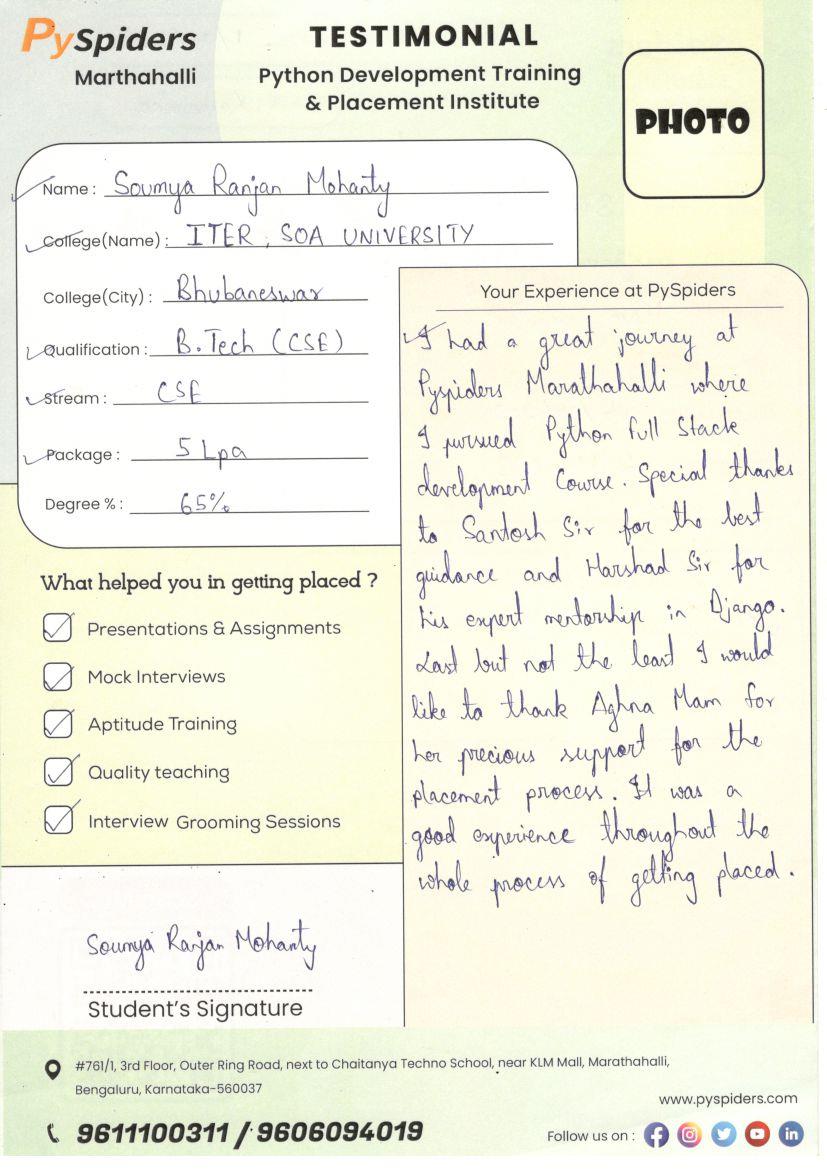 PySpiders
Marthahalli
TESTIMONIAL
Python Development Training
& Placement Institute
PHOTO
Name : Soumya Ranjan Mohanty
College(Name) : ITER, SOA UNIVERSITY
College(City) : Bhubaneswar
Qualification : B.Tech (CSE)
Stream : CSE
Package : 5 Lpa
Degree % : 65%
What helped you in getting placed ?
Presentations & Assignments
Mock Interviews
Aptitude Training
Quality teaching
Interview Grooming Sessions
Your Experience at PySpiders
I had a great journey at
Pyspiders Marathahalli where
I pursued Python full Stack
development Course. Special thanks
to Santosh Sir for the best
guidance and Harshad Sir for
his expert mentorship in Django.
Last but not the least I would
like to thank Aghna Mam for
her precious support for the
placement process. It was a
good experience throughout the
whole process of getting placed.
Soumya Ranjan Mohanty
Student's Signature
#761/1, 3rd Floor, Outer Ring Road, next to Chaitanya Techno School, near KLM Mall, Marathahalli,
Bengaluru, Karnataka-560037
www.pyspiders.com
9611100311 / 9606094019
Follow us on :